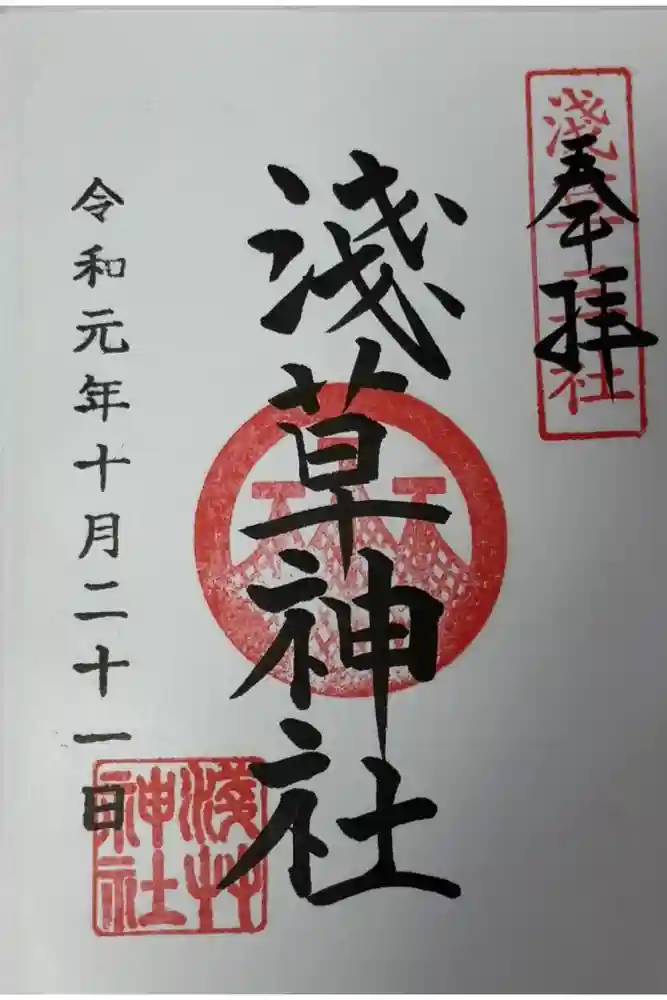 奉拝
淺草神社
淺草神社
令和元年十月二十一日
淺草
神社